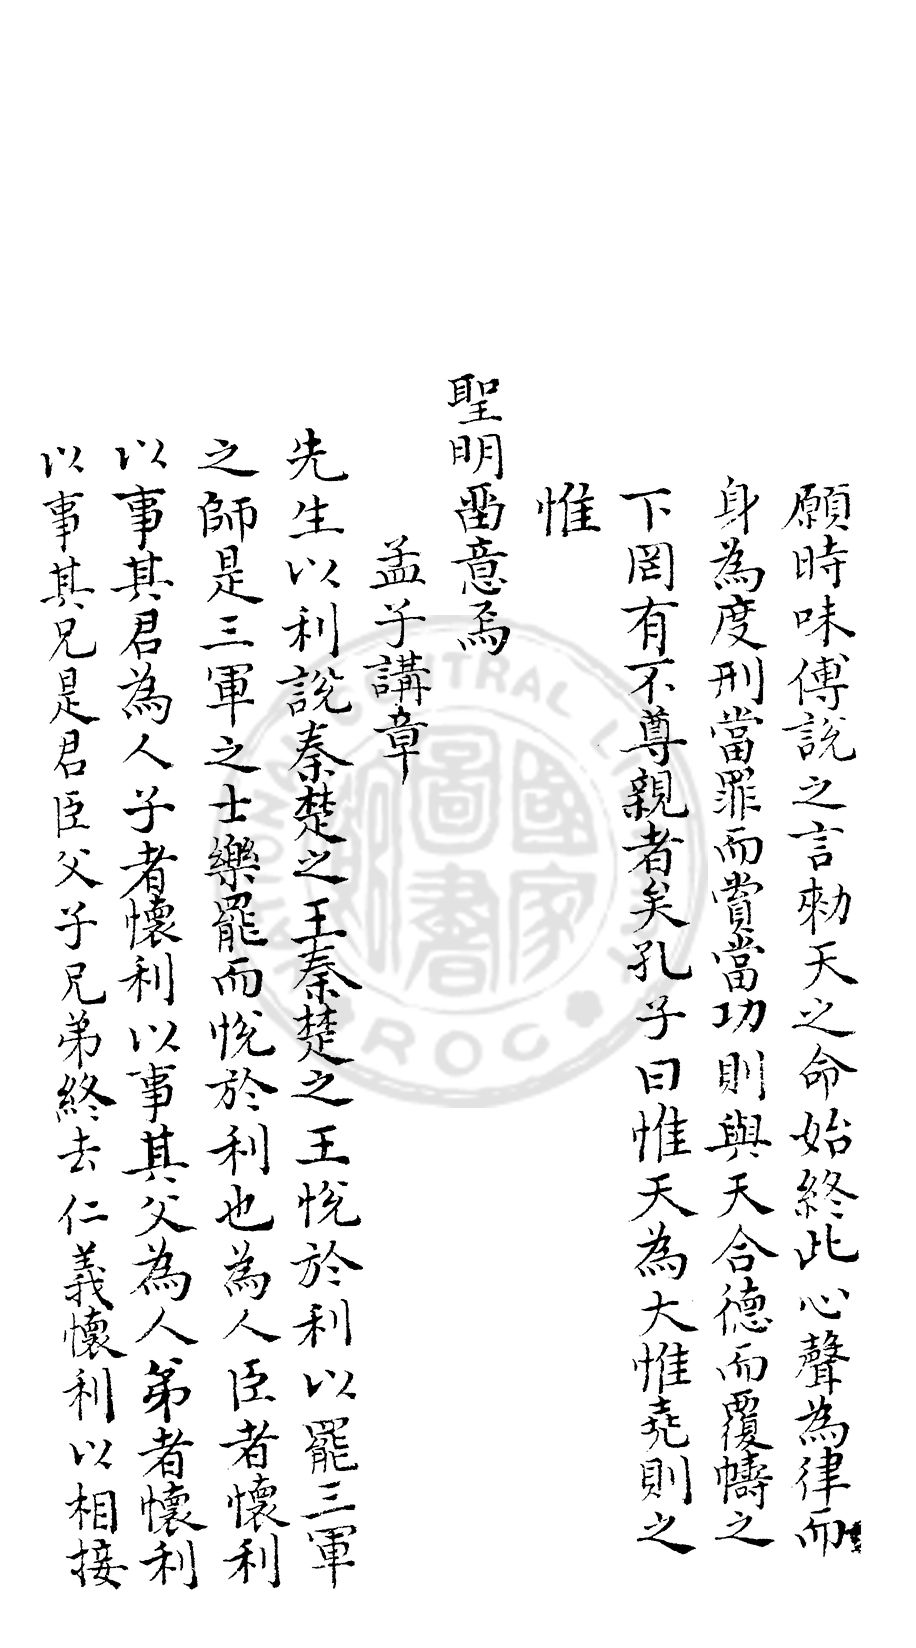 願時味傅說之言勑天之命始終此心聲為律而
身為度刑當罪而賞當功則與天合德而覆幬之
下罔有不尊親者矣孔子曰惟天為大惟堯則之
惟
聖明畱意焉
孟子講章
先生以利說秦楚之王秦楚之王悅於利以罷三軍
之師是三軍之士樂罷而悅於利也為人臣者懷利
以事其君為人子者懷利以事其父為人弟者懷利
以事其兄是君臣父子兄弟終去仁義懷利以相接
國家圖書館
NATIONAL CENTRAL LIBRARY
ROC